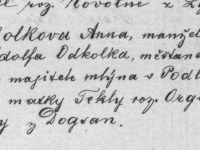 roz. Novotné z
olkova Anna, manžel
dolfa Odkolka, měšťana
majitele mlýna v Podl
matky Tekly roz. Orgo
z Dogsan.